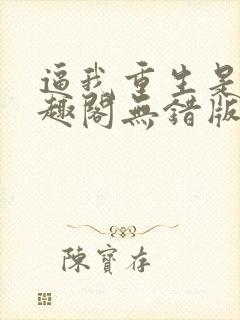 逼我重生是
趣閣無錯版
陳寶存